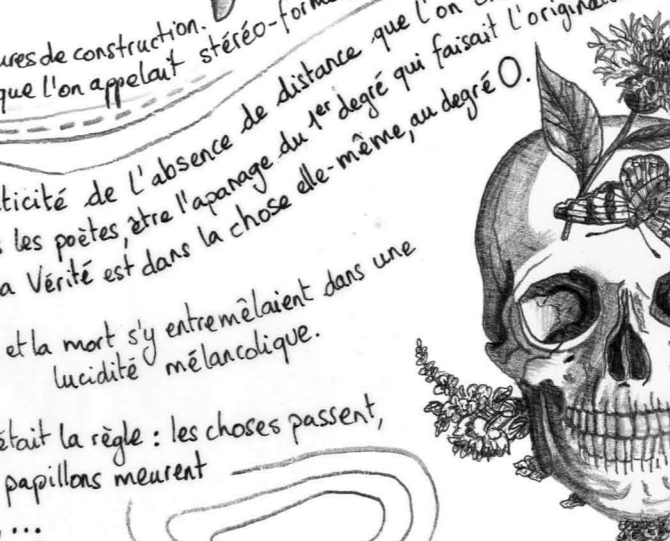 ures de construction.
que l'on appelait stéréo-form
ticité de l'absence de distance que l'on
les poètes, être l'apanage du 1er degré qui faisait l'origina
a Vérité est dans la chose elle-même, au degré 0.
et la mort s'y entremêlaient dans une
lucidité mélancolique.
était la règle : les choses passent,
papillons meurent
...